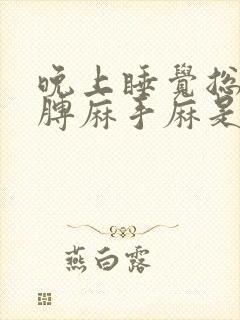 晚上睡覺總
脾麻手麻是
燕白露